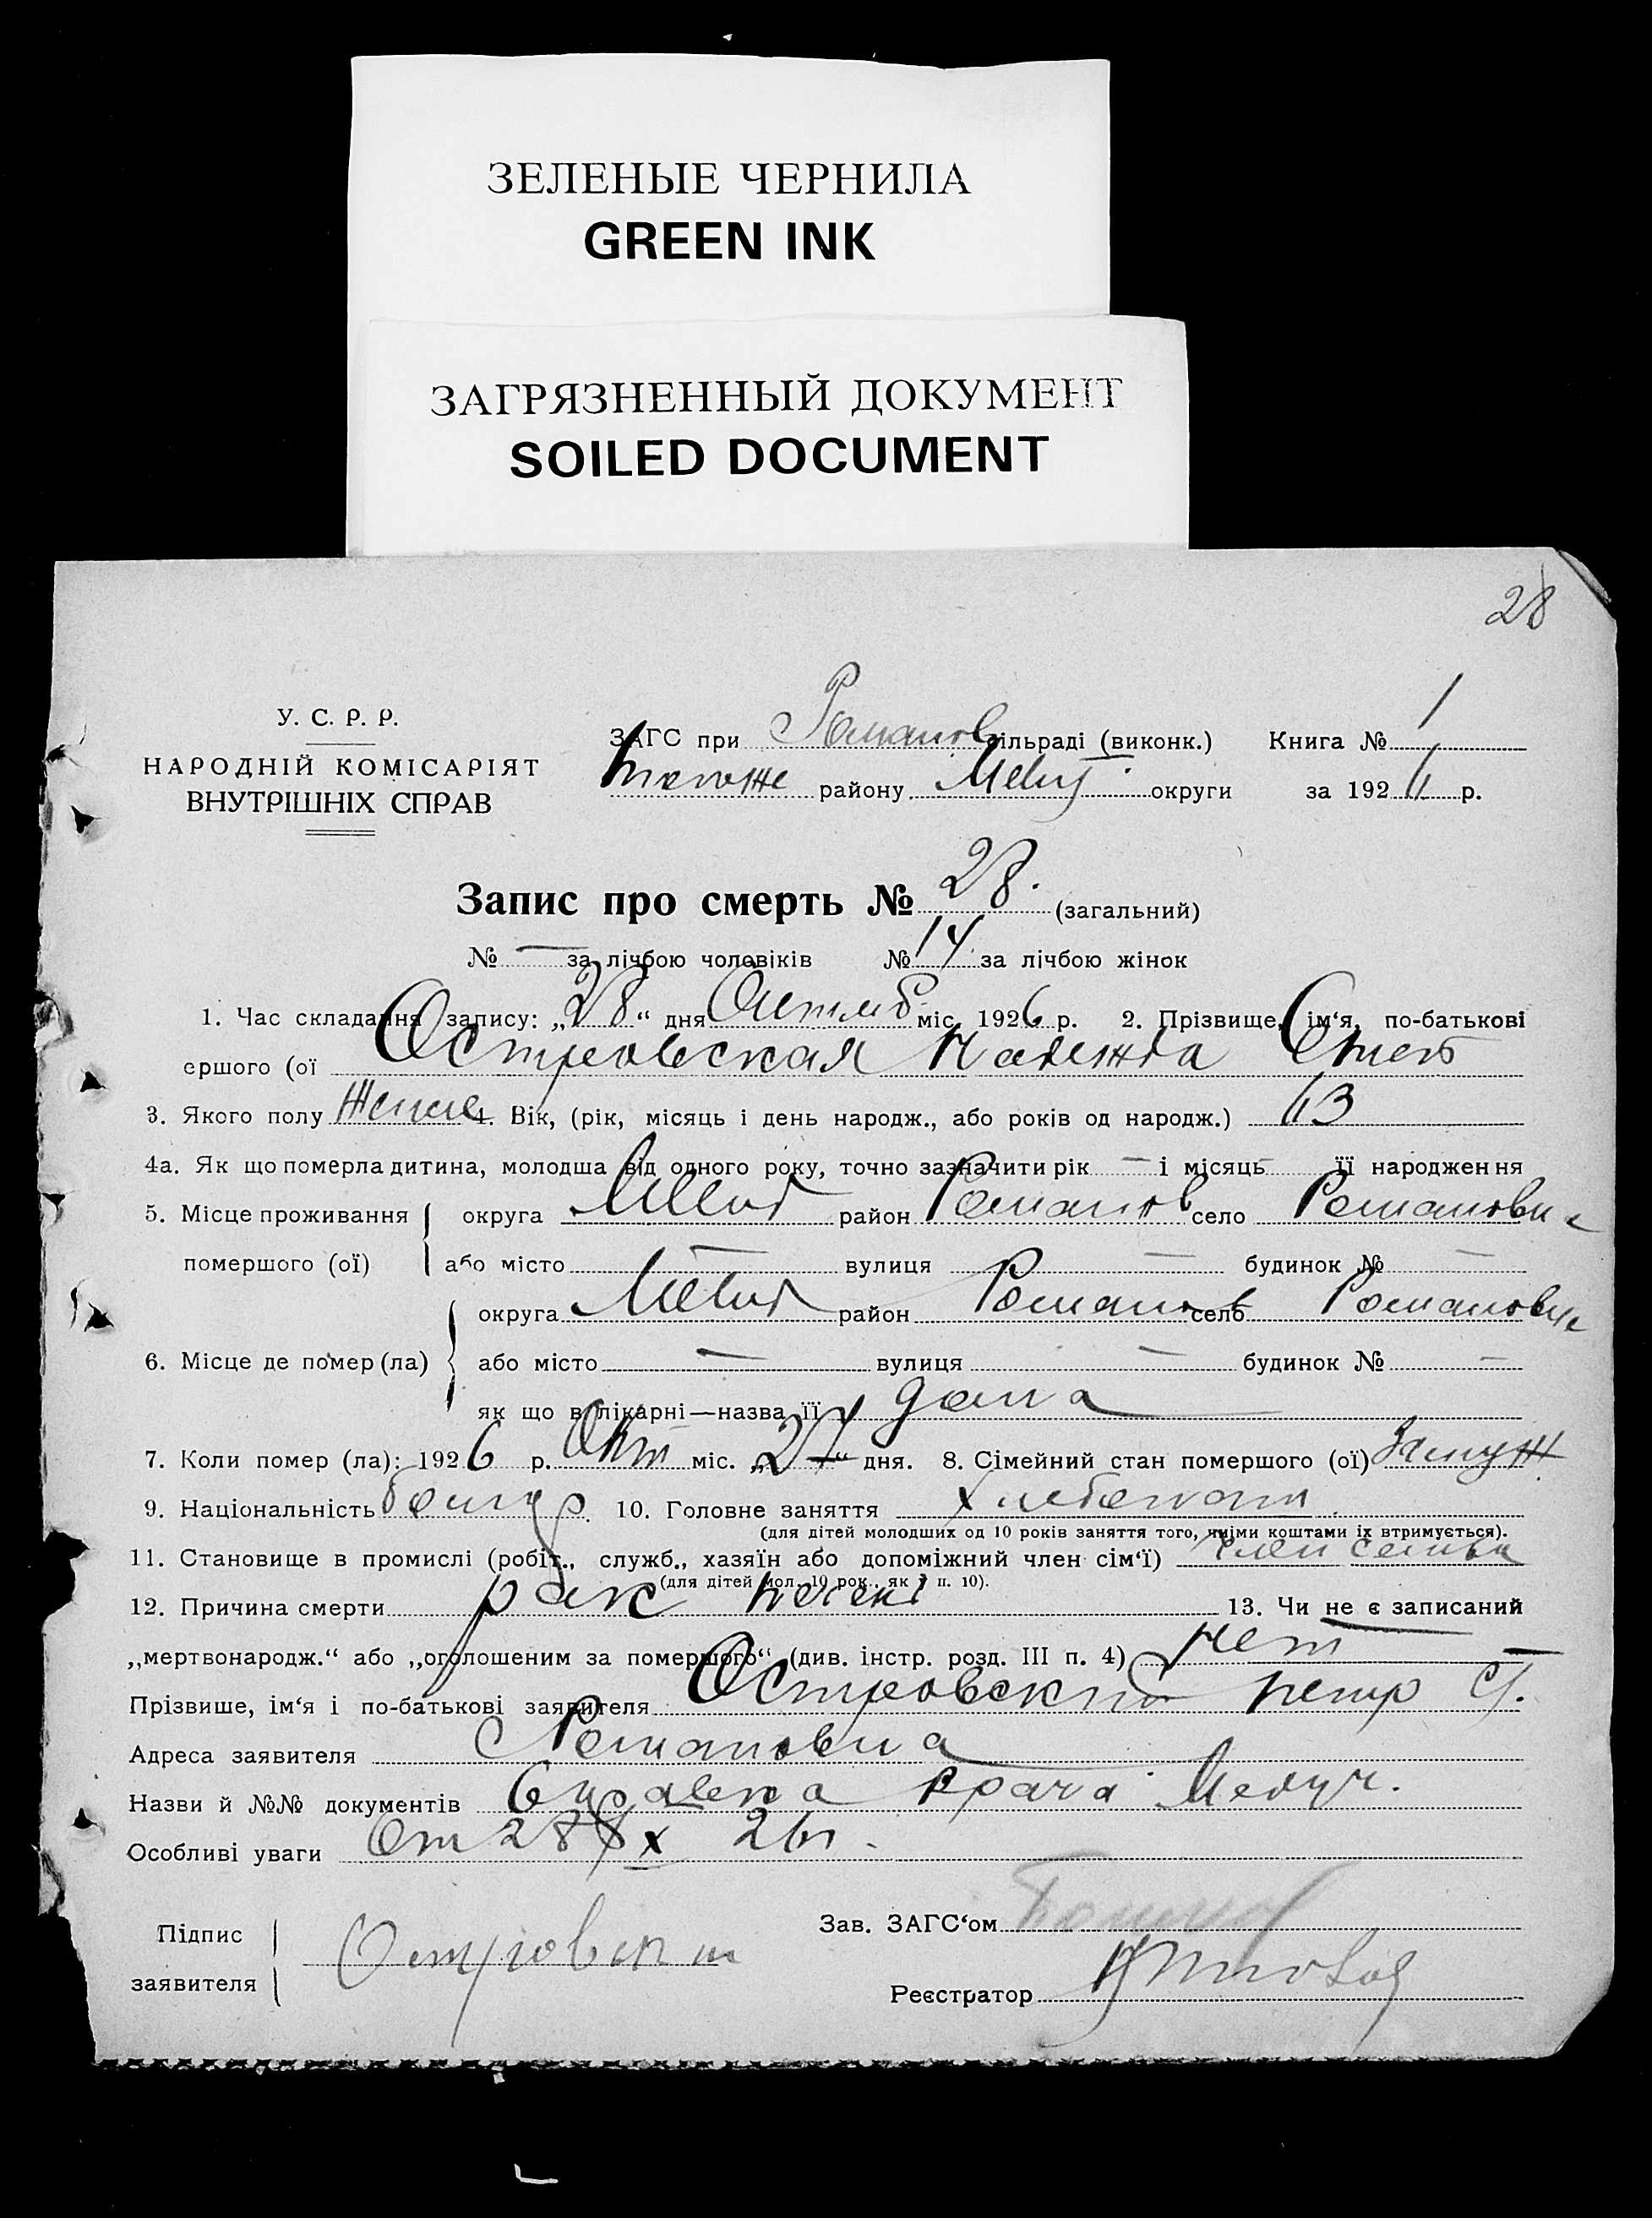 ЗЕЛЕНЫЕ ЧЕРНИЛА
GREEN INK
ЗАГРЯЗНЕННЫЙ ДОКУМЕНТ
SOILED DOCUMENT
28
У. С. Р. Р.
НАРОДНІЙ КОМІСАРІЯТ
ВНУТРІШНІХ СПРАВ
ЗАГС при Романов сільраді (виконк.) Книга № 1
того же району Мелит округи за 1926 р.
Запис про смерть № 28. (загальний)
№ — за лічбою чоловіків № 14 за лічбою жінок
1. Час складання запису: „28“ дня Октяб міс. 1926 р. 2. Прізвище, ім‘я, по-батькові
ершого (ої Островская Надежда
3. Якого полу 4. Вік, (рік, місяць і день народж., або років од народж.) 63
4а. Як що померла дитина, молодша від одного року, точно зазначити рік — і місяць — її народження
5. Місце проживання округа Мелит район Романов село Романовка
помершого (ої) або місто — вулиця — будинок № —
округа Мелит район Романов село Романовка
6. Місце де помер (ла) або місто — вулиця — будинок № —
як що в лікарні—назва її дома
7. Коли помер (ла): 1926 р. Окт міс. „27“ дня. 8. Сімейний стан помершого (ої) Замуж
9. Національність болгар. 10. Головне заняття хлебопаш
(для дітей молодших од 10 років заняття того, чиїми коштами їх втримується).
11. Становище в промислі (робіт., служб., хазяїн або допоміжний член сім‘ї) член семьи
(для дітей мол. 10 рок., як у п. 10).
12. Причина смерти рак 13. Чи не є записаний
„мертвонародж.“ або „оголошеним за помершого“ (див. інстр. розд. III п. 4) нет
Прізвище, ім‘я і по-батькові заявителя Островский Петр Ст.
Адреса заявителя с Романовка
Назви й №№ документів Справка врача
Особливі уваги От 28 X 26 г.
Підпис Островский Зав. ЗАГС‘ом
заявителя Реєстратор